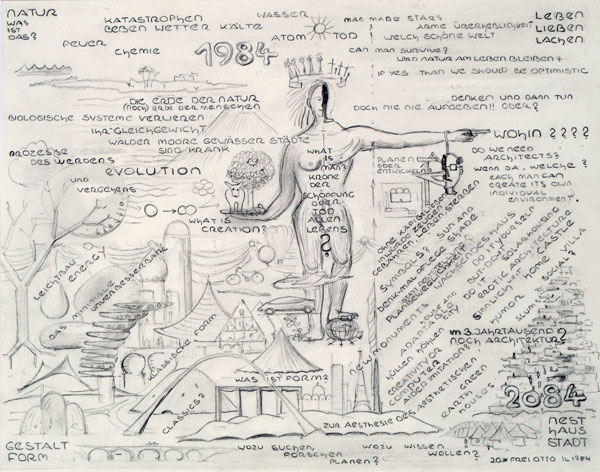 NATUR
WAS
IST
DAS?
KATASTROPHEN
BEBEN WETTER KÄLTE
WASSER
FEUER
CHEMIE
1984
ATOM TOD
MAN MADE STARS
ARME ÜBERHEBLICHKEIT
WELCH SCHÖNE WELT
LEBEN
LIEBEN
LACHEN
CAN MAN SURVIVE?
WIRD NATUR AM LEBEN BLEIBEN?
IF YES THAN WE SHOULD BE OPTIMISTIC
DIE ERDE DER NATUR
(NOCH) ERDE DER MENSCHEN
BIOLOGISCHE SYSTEME VERLIEREN
IHR GLEICHGEWICHT
WÄLDER MOORE GEWÄSSER STÄDTE
SIND KRANK
DENKEN UND DANN TUN
DOCH NIE NIE AUFGEBEN!! ODER?
PROZESSE
DES WERDENS
EVOLUTION
UND
VERGEHENS
WHAT IS
CREATION?
WHAT
IS
MAN?
KRONE
DER
SCHÖPFUNG
ODER
TOD
ALLEN
LEBENS
?
PLANEN
ODER
ENTWICKELN
WOHIN ????
DO WE NEED
ARCHITECTS?
WENN JA, WELCHE?
EACH MAN CAN
CREATE ITS OWN
INDIVIDUAL
ENVIRONMENT.
LEICHTBAU
ENERGY
DAS MINIMALE
UNVERBESSERBARE
KLASSISCHE FORM
CLASSICS?
WAS IST FORM?
SYMBOLS?
DENKMAL PFLEGE
NEW MONUMENTS
HÜLLEN HÖHLEN
CREATIVITY OR
COMPUTER
AIDED IMITATION?
ZUR AESTHESIE DES AESTHETISCHEN
SUN AND
SHADE
DO IT YOURSELF
SOLARHOUSING
EROTIC ARCTITECTURE
SINNLICHKEIT
HOME CASTLE VILLA
HUMOR
SLUM
GREEN
EARTH
HOUSES
IM 3. JAHRTAUSEND
NOCH ARCHITEKTUR?
2084
NEST
HAUS
STADT
GESTALT
FORM
WOZU SUCHEN,
FORSCHEN
PLANEN?
WOZU WISSEN
WOLLEN?
FREI OTTO
1984